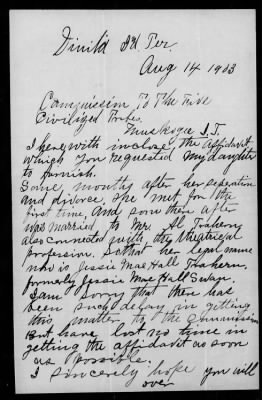 Vinita Id Ter.
Aug 14 1903
Commission To The Five
Civilized Tribes.
Muskogee I.T.
I herewith inclose the affidavit
which you requested my daughter
to furnish.
Some months after her seperation
and divorce. She met for the
first time, and soon there after
was married to Mr. Al Trahern
also connected with the theatrical
profession. So that her legal name
now is Jessie Mae Hall Trahern.
formerly Jessie Mae Hall Swan.
I am sorry that there has
been such delay in getting
this matter to the Commission
But have lost no time in
getting the affidavit as soon
as possible.
I sincerely hope you will
over